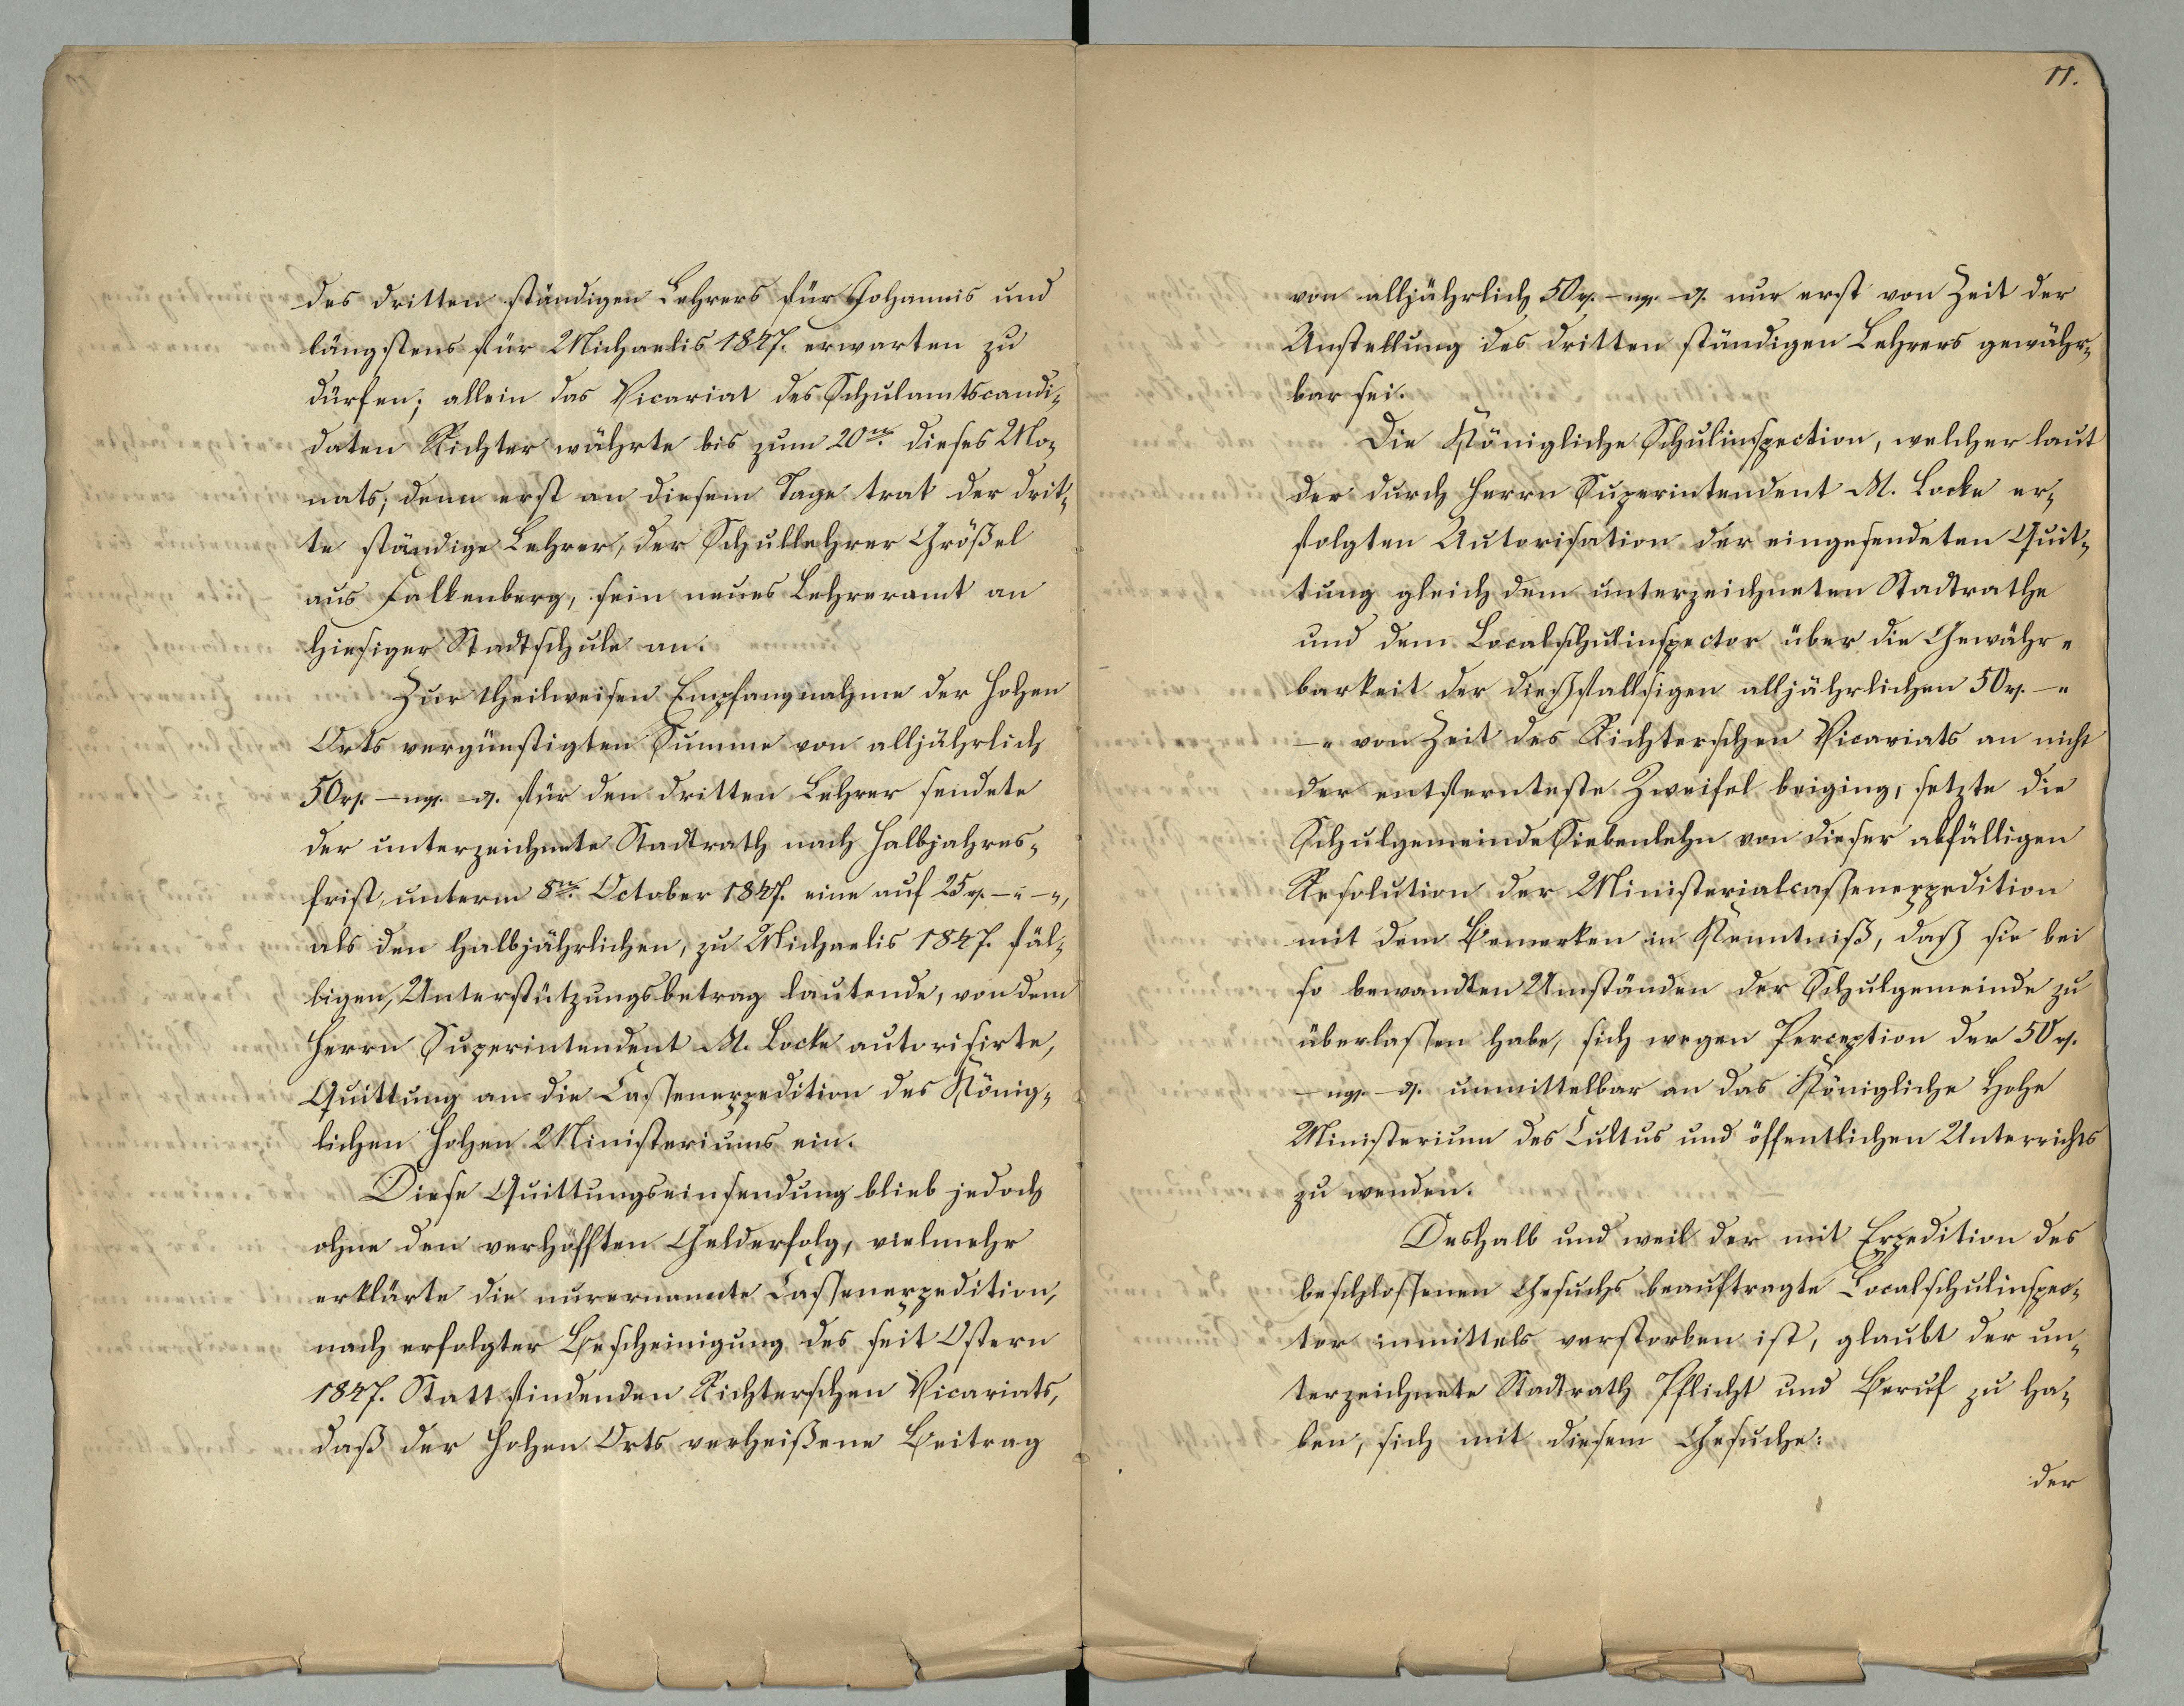 des dritten ständigen Lehrers für Johannis und
längstens für Michaelis 1847. erwarten zu
dürfen; allein das Vicariat des Schulamtscandi-
daten Richter währte bis zum 20ten dieses Mo-
nats; denn erst an diesem Tage trat der drit-
te ständige Lehrer, der Schullehrer Größel
aus Falkenberg, sein neues Lehreramt an
hiesiger Stadtschule an.
Zur theilweisen Empfangnahme der Hohen
Orts vergünstigten Summe von alljährlich
50 rp. - ngr. - d. für den dritten Lehrer sendete
der unterzeichnete Stadtrath nach Halbjahres-
frist, unterm 8ten October 1847. eine auf 25 rp. - " - ",
als den halbjährlichen, zu Michaelis 1847. fäl-
ligen, Unterstützungsbetrag lautende, von dem
Herrn Superintendent M. Locke autorisirte,
Quittung an die Cassenexpedition des König-
lichen Hohen Ministeriums ein.
Diese Quittungseinsendung blieb jedoch
ohne den verhofften Gelderfolg, vielmehr
erklärte die nurernannte Cassenexpedition,
nach erfolgter Bescheinigung des seit Ostern
1847. Statt findenden Richterschen Vicariats,
daß der Hohen Orts verheißene Beitrag
11.
von alljährlich 50 rp. - ngr. - d. nur erst von Zeit der
Anstellung des dritten ständigen Lehrers gewähr-
bar sei.
Die Königliche Schulinspection, welcher laut
der durch Herrn Superintendent M. Locke er-
folgten Autorisation der eingesendeten Quit-
tung gleich dem unterzeichneten Stadtrathe
und dem Localschulinspector über die Gewähr-
barkeit der dießfallsigen alljährlichen 50 rp. - "
- " von Zeit des Richterschen Vicariats an nicht
der entfernteste Zweifel beiging, setzte die
Schulgemeinde Siebenlehn von dieser abfälligen
Resolution der Ministerialcassenexpedition
mit dem Bemerken in Kenntniß, daß sie bei
so bewandten Umständen der Schulgemeinde zu
überlassen habe, sich wegen Perception der 50 rp.
- ngr. - d. unmittelbar an das Königliche Hohe
Ministerium des Cultus und öffentlichen Unterrichts
zu wenden.
Deshalb und weil der mit Expedition des
beschlossenen Gesuchs beauftragte Localschulinspec-
tor inmittels verstorben ist, glaubt der un-
terzeichnete Stadtrath Pflicht und Beruf zu ha-
ben, sich mit diesem Gesuche:
der